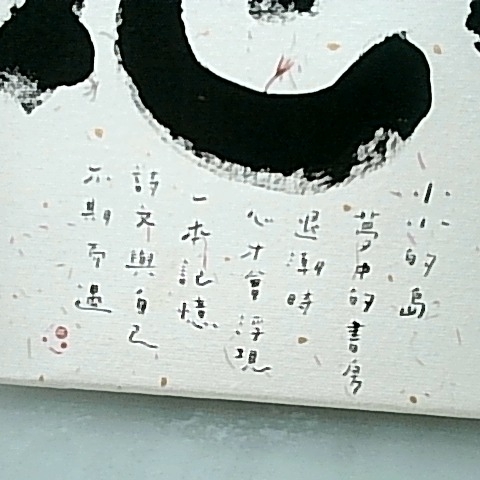 小小的島
夢中的書房
退潮時
心才會浮現
一本記憶
詩文與自己
不期而遇